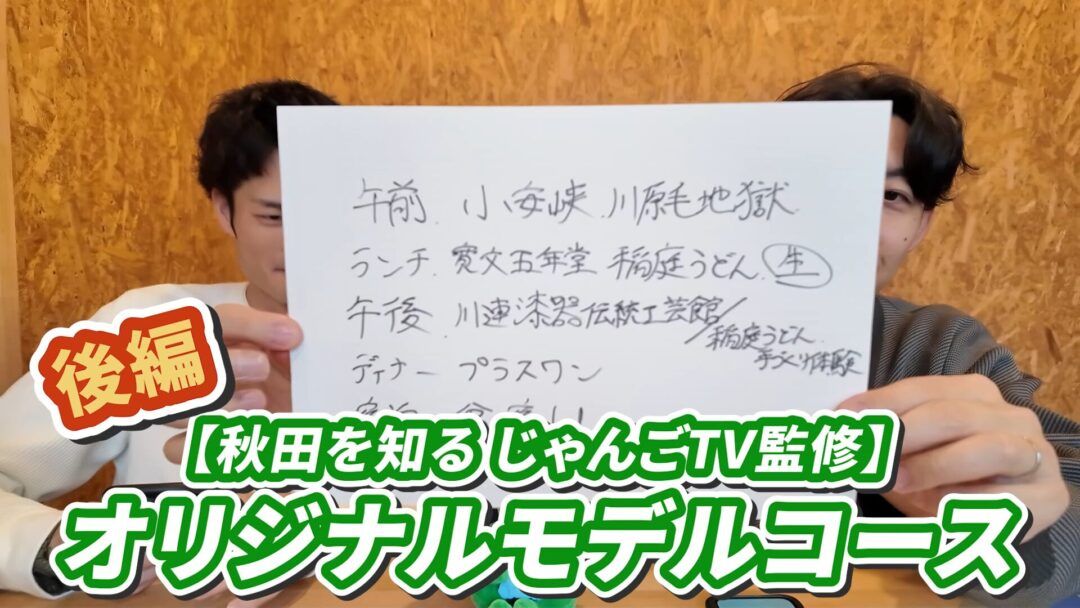 午前. 小安峡. 川原毛地獄.
ランチ. 寛文五年堂 稲庭うどん. 生
午後. 川連漆器伝統工芸館/
稲庭うどん
手づくり体験
ディナー プラスワン
後編
【秋田を知る じゃんごTV監修】
オリジナルモデルコース